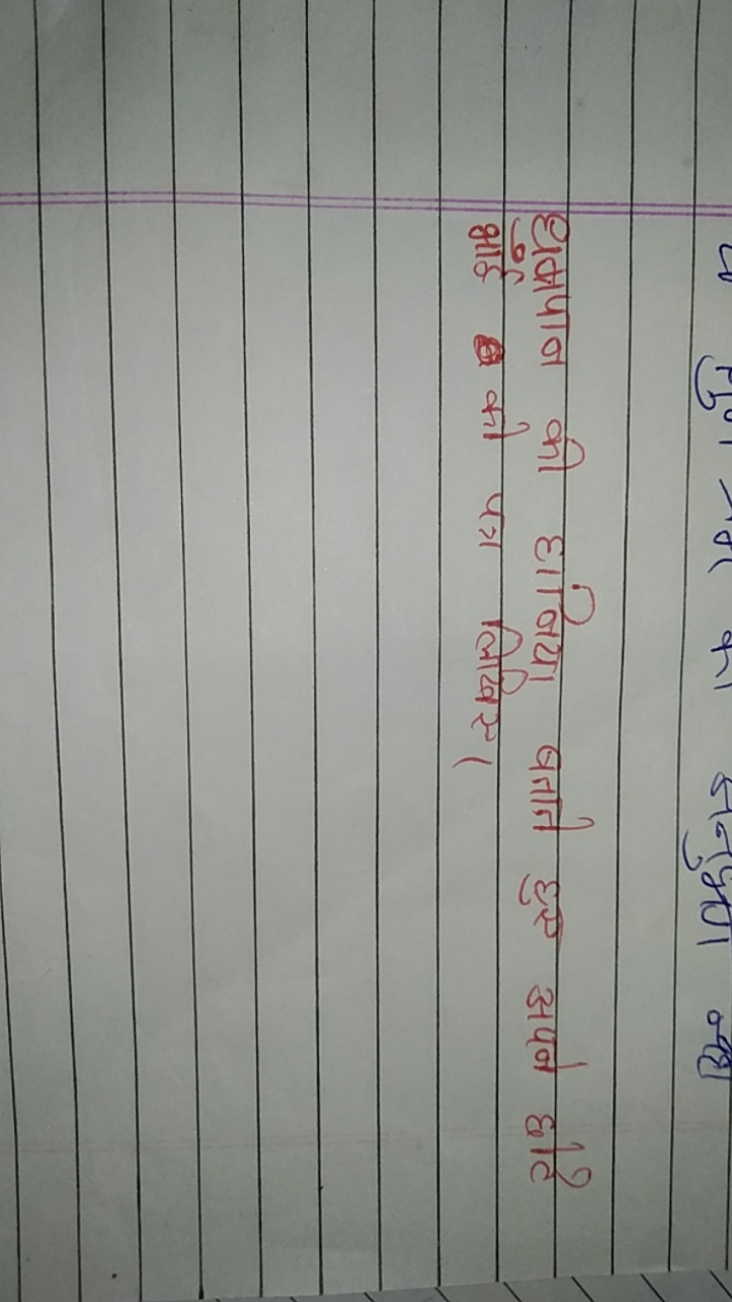 धुम्रपान की हानियाँ बताते हुए अपने छोटे
भाई को पत्र लिखिए।